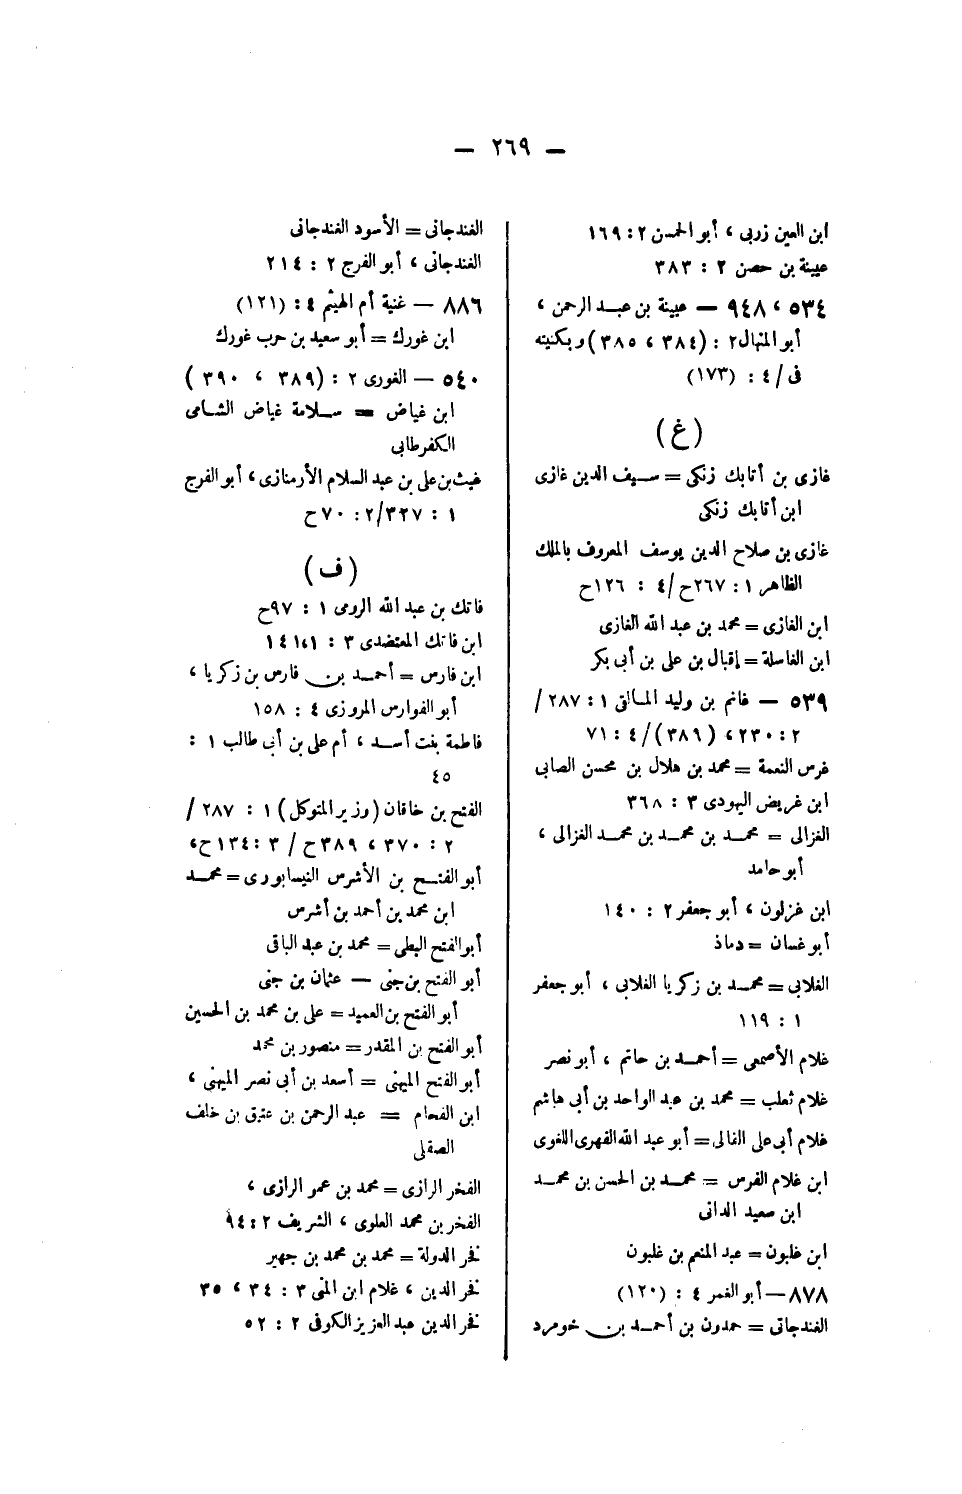 — ٢٦٩ —
ابن العين زربى ، أبو الحسن ٢ : ١٦٩
عيينة بن حصن ٢ : ٣٨٣
٥٣٤ ، ٩٤٨ — عيينة بن عبد الرحمن ،
أبو المنهال ٢ : (٣٨٤ ، ٣٨٥) وبكنيته
فى / ٤ : (١٧٣)
(غ)
غازى بن أتابك زنكى = سيف الدين غازى
ابن أتابك زنكى
غازى بن صلاح الدين يوسف المعروف بالملك
الظاهر ١ : ٢٦٧ح / ٤ : ١٢٦ح
ابن الغازى = محمد بن عبد الله الغازى
ابن الغاسلة = إقبال بن على بن أبى بكر
٥٣٩ — غانم بن وليد المالقى ١ : ٢٨٧ /
٢ : ٢٣٠ ، (٣٨٩) / ٤ : ٧١
غرس النعمة = محمد بن هلال بن محسن الصابى
ابن غريض اليهودى ٣ : ٣٦٨
الغزالى = محمد بن محمد بن محمد الغزالى ،
أبو حامد
ابن غزلون ، أبو جعفر ٢ : ١٤٠
أبو غسان = دماذ
الغلابى = محمد بن زكريا الغلابى ، أبو جعفر
١ : ١١٩
غلام الأصمعى = أحمد بن حاتم ، أبو نصر
غلام ثعلب = محمد بن عبد الواحد بن أبى هاشم
غلام أبى على القالى = أبو عبد الله الفهرى اللغوى
ابن غلام الفرس = محمد بن الحسن بن محمد
ابن سعيد الدانى
ابن غلبون = عبد المنعم بن غلبون
٨٧٨ — أبو الغمر ٤ : (١٢٠)
الغندجانى = حمدون بن أحمد بن خومرد
الغندجانى = الأسود الغندجانى
الغندجانى ، أبو الفرج ٢ : ٢١٤
٨٨٦ — غنية أم الهيثم ٤ : (١٢١)
ابن غورك = أبو سعيد بن حرب غورك
٥٤٠ — الغورى ٢ : (٣٨٩ ، ٣٩٠)
ابن غياض = سلامة غياض الشامى
الكفرطابى
غيث بن على بن عبد السلام الأرمنازى ، أبو الفرج
١ : ٣٢٧ / ٢ : ٧٠ح
(ف)
فاتك بن عبد الله الرومى ١ : ٩٧ح
ابن فاتك المعتضدى ٣ : ١٤١،١
ابن فارس = أحمد بن فارس بن زكريا ،
أبو الفوارس المروزى ٤ : ١٥٨
فاطمة بنت أسد ، أم على بن أبى طالب ١ :
٤٥
الفتح بن خاقان (وزير المتوكل) ١ : ٢٨٧ /
٢ : ٣٧٠ ، ٣٨٩ح / ٣ : ١٣٤ح ،
أبو الفتح بن الأشرس النيسابورى = محمد
ابن محمد بن أحمد بن أشرس
أبو الفتح البطى = محمد بن عبد الباقى
أبو الفتح بن جنى — عثمان بن جنى
أبو الفتح بن العميد = على بن محمد بن الحسين
أبو الفتح بن المقدر = منصور بن محمد
أبو الفتح الميهنى = أسعد بن أبى نصر الميهنى ،
ابن الفحام = عبد الرحمن بن عتيق بن خلف
الصقلى
الفخر الرازى = محمد بن عمر الرازى ،
الفخر بن محمد العلوى ، الشريف ٢ : ٩٤
فخر الدولة = محمد بن محمد بن جهير
فخر الدين ، غلام ابن المنى ٣ : ٣٤ ، ٣٥
فخر الدين عبد العزيز الكوفى ٢ : ٥٢